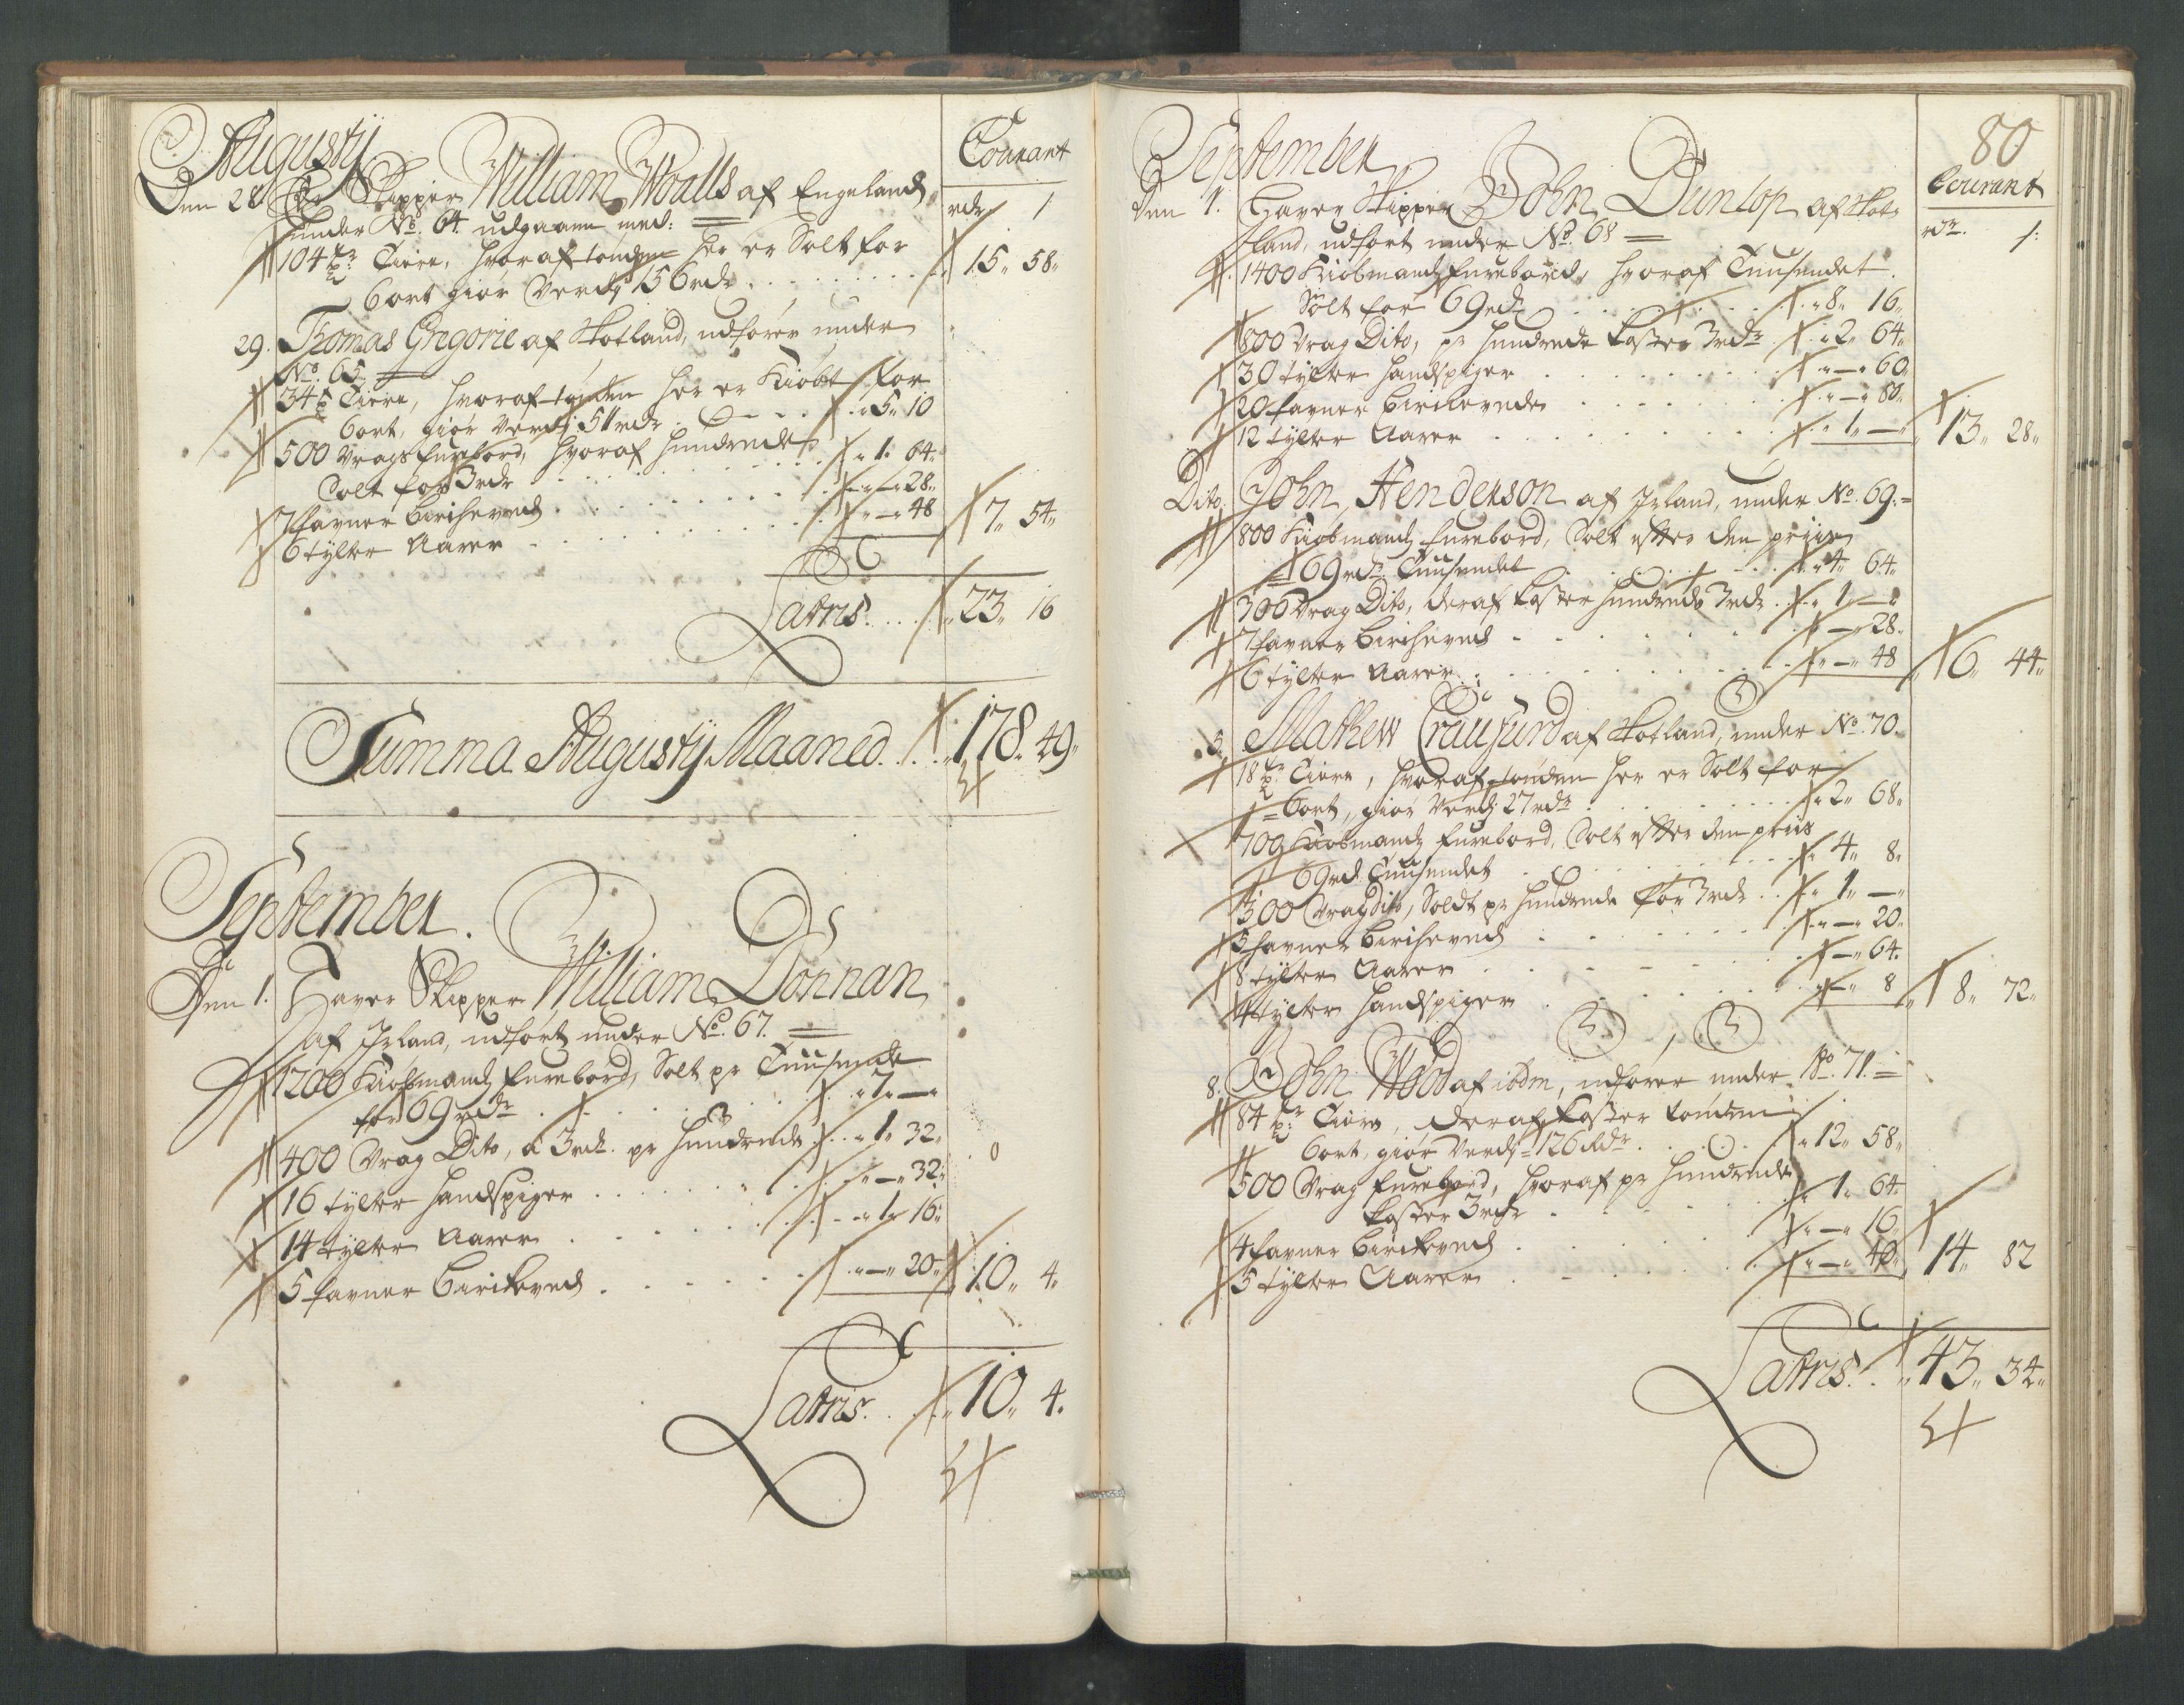 Augustÿ
Courant
Den 28. Er Skipper William Walls af Engeland,
rdr. 1
under No. 64. udgaaen med:
104 tr. Tiære, hvoraf tønden her er Solt for
6 ort giør Verdj 156 rdr. 15" 58"
29. Thomas Grigorie af Skotland, udfører under
No. 65.
34 Tiære, hvoraf tønden her er Kiøbt for
6 ort, giør Verdj 51 rdr. 5" 10
500 Vrags furebord, hvoraf hundredet
Solt for 3 rdr 1" 64.
7 favner Birkeved " — " 28"
6 tÿlter Aarer " — " 48 7" 54"
Latris. 23" 16
Summa Augustÿ Maaned. 178. 49"
September.
Den 1. Haver Skipper William Donnan
af Irland, udført under No. 67.
1200 Kiøbmandz furebord, Solt pr Tuusende
for 69 rdr. 7" —"
400 Vrag Dito, á 3 rdr. pr hundrede 1" 32"
16 tÿlter handspiger " — " 32"
14 tÿlter Aarer 1" 16"
5 favner Birkeved " — " 20" 10" 4"
Latris. 10" 4.
80
September
Courant
Den 1. Haver Skipper John Dunlop af Skot-
rdr. 1:
land, udført under No. 68
1400 Kiøbmandz furebord, hvoraf Tuusendet
Solt for 69 rdr. 8" 16"
800 Vrag Dito, pr hundrede koster 3 rdr. 2" 64"
30 tÿlter handspiger " — " 60"
20 favner Birkevede " — " 80"
12 tÿlter Aarer 1" — " 13" 28"
Dito. John Henderson af Irland, under No. 69.
800 Kiøbmandz furebord, Solt efter den priis
69 rdr. Tuusendet 4" 64"
300 Vrag Dito, deraf koster hundrede 3 rdr. 1" — "
7 favner Birkeved " — " 28"
6 tÿlter Aarer " — " 48 6" 44"
5. Mathew Craufurd af Skotland, under No. 70.
18 tr. Tiære, hvoraf tønden her er Solt for
6 ort, giør Verdj 27 rdr. 2" 68"
700 Kiøbmandz furebord, Solt efter den priis
69 rd. Tuusendet 4" 8"
300 Vrag Dito, Soldt pr hundrede for 3 rdr. 1" — "
5 favner Birkeved " — " 20"
8 tÿlter Aarer " — " 64.
4 tÿlter handspiger " — " 8 8" 72"
8. John Wood af ibdm, udfører under No. 71.
84 tr. Tiære, deraf koster tønden
6 ort, giør Verdj 126 Rdr. 12" 58"
500 Vrag furebord, hvoraf pr hundrede
koster 3 rdr 1" 64"
4 favner Birkeved " — " 16"
5 tÿlter Aarer " — " 40" 14" 82
Latris. 43" 34"